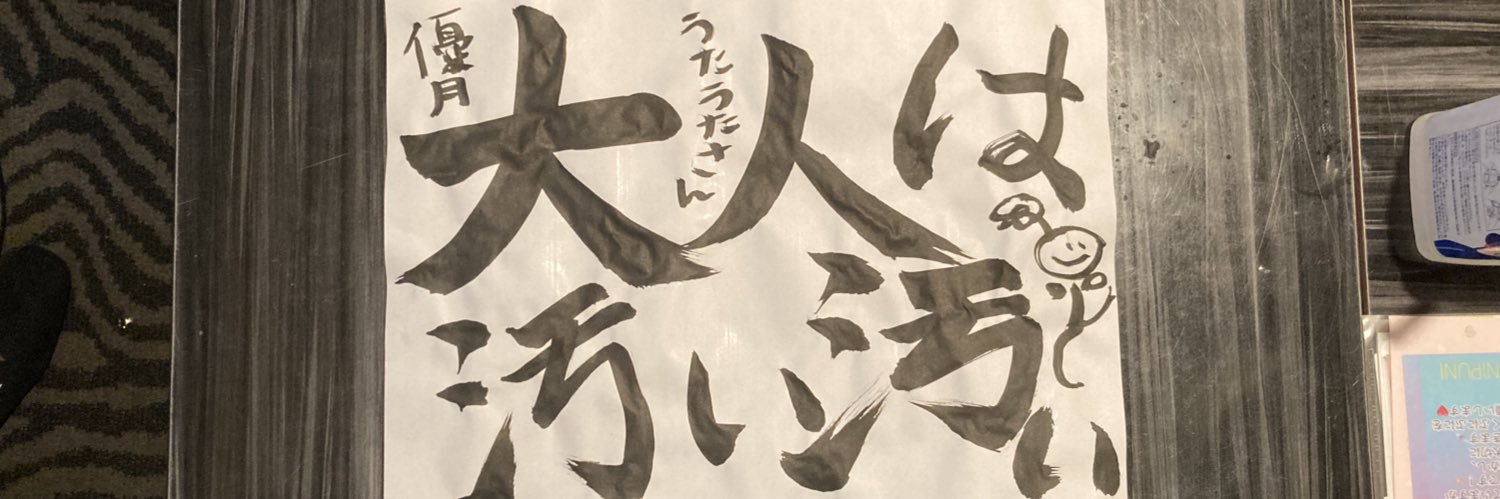 優月
うたうたさん
大人は
汚い汚い